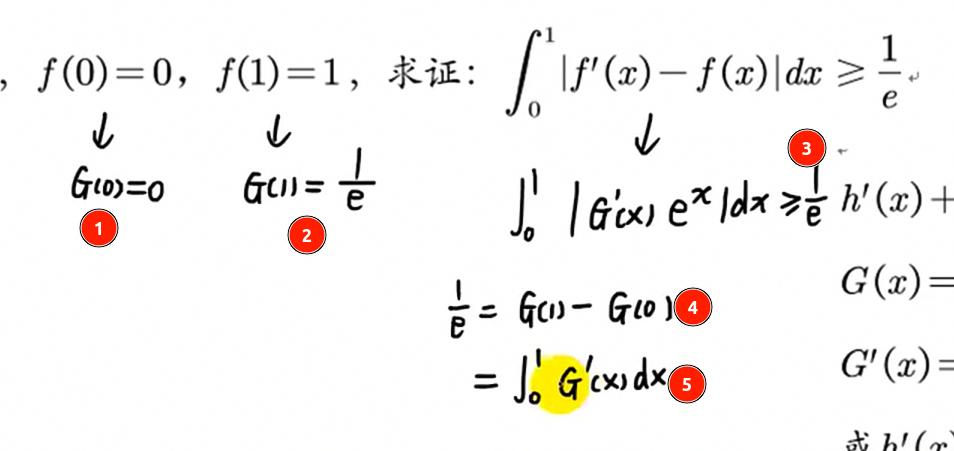 , f(0)=0, f(1)=1, 求证: ∫₀¹|f′(x)−f(x)|dx ⩾ 1/e
↓ ↓ ↓
G(0)=0 G(1)=1/e ∫₀¹|G′(x)eˣ|dx ⩾ 1/e h′(x)+
1 2 3
1/e = G(1)−G(0) 4 G(x)=
= ∫₀¹G′(x)dx 5 G′(x)=
或 h′(x)